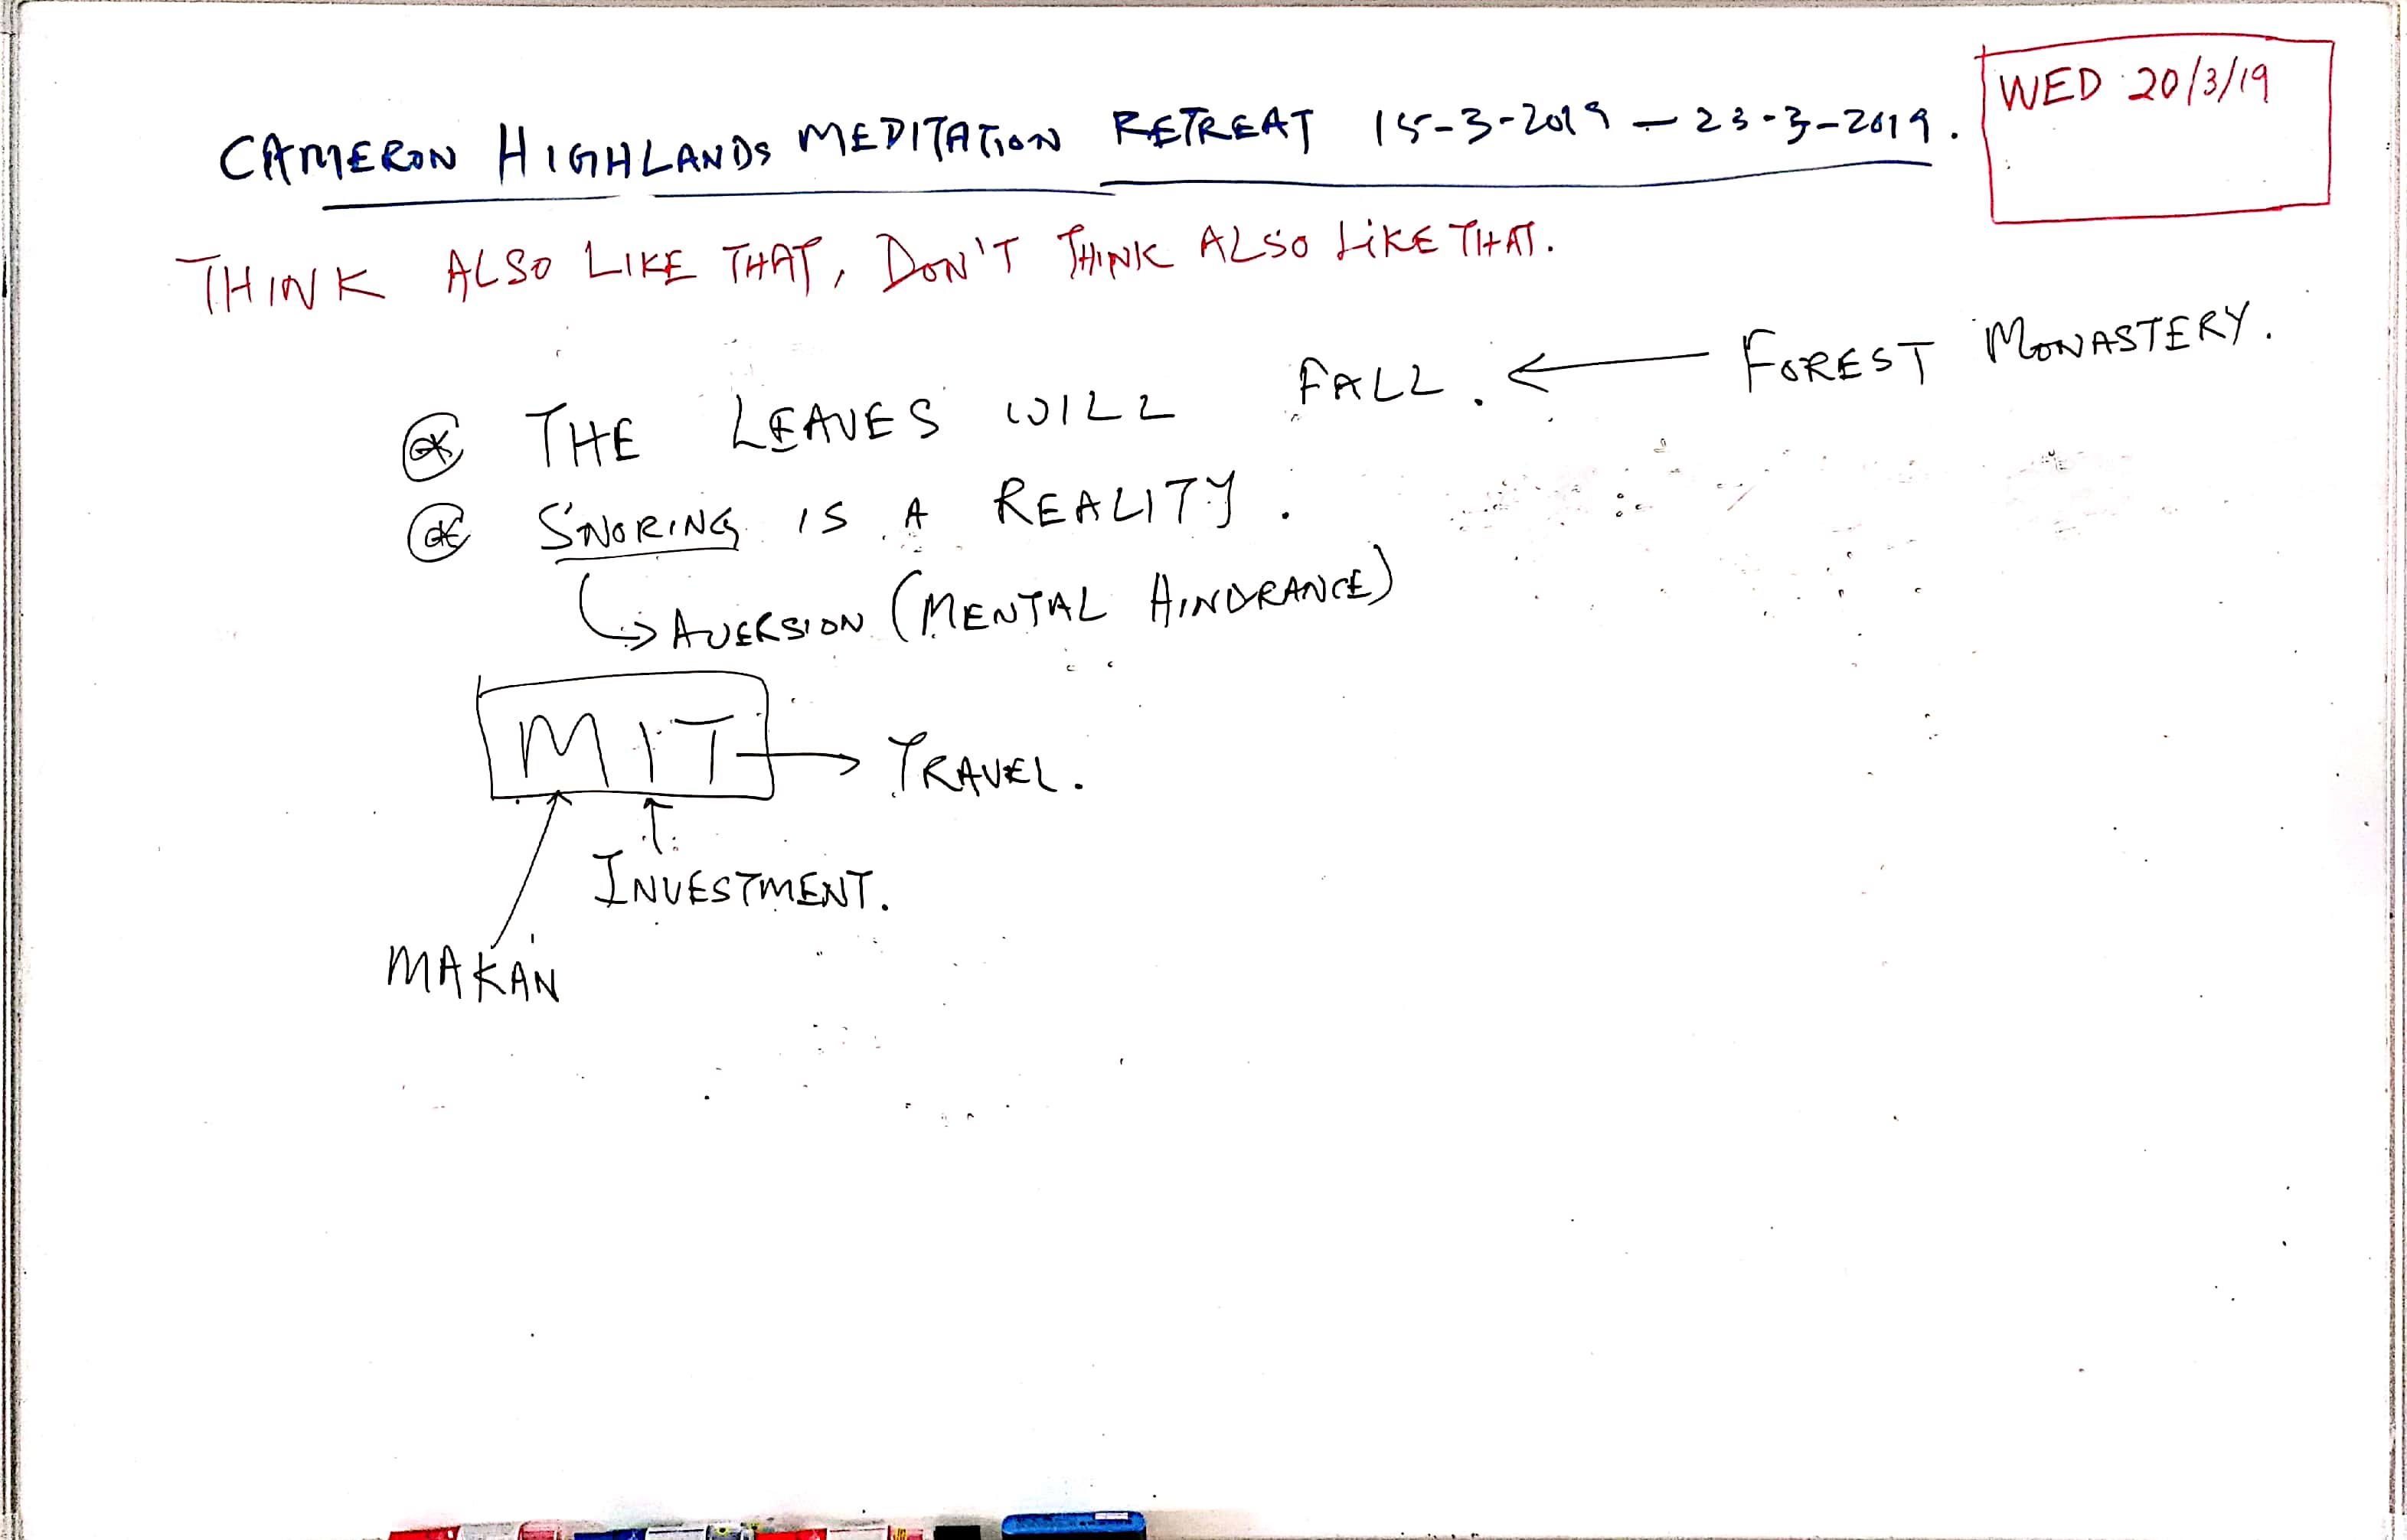 WED 20/3/19
CAMERON HIGHLANDS MEDITATION RETREAT 15-3-2019 — 23-3-2019.
THINK ALSO LIKE THAT, DON'T THINK ALSO LIKE THAT.
THE LEAVES WILL FALL. ← FOREST MONASTERY.
SNORING IS A REALITY.
AVERSION (MENTAL HINDRANCE)
MIT → TRAVEL.
INVESTMENT.
MAKAN